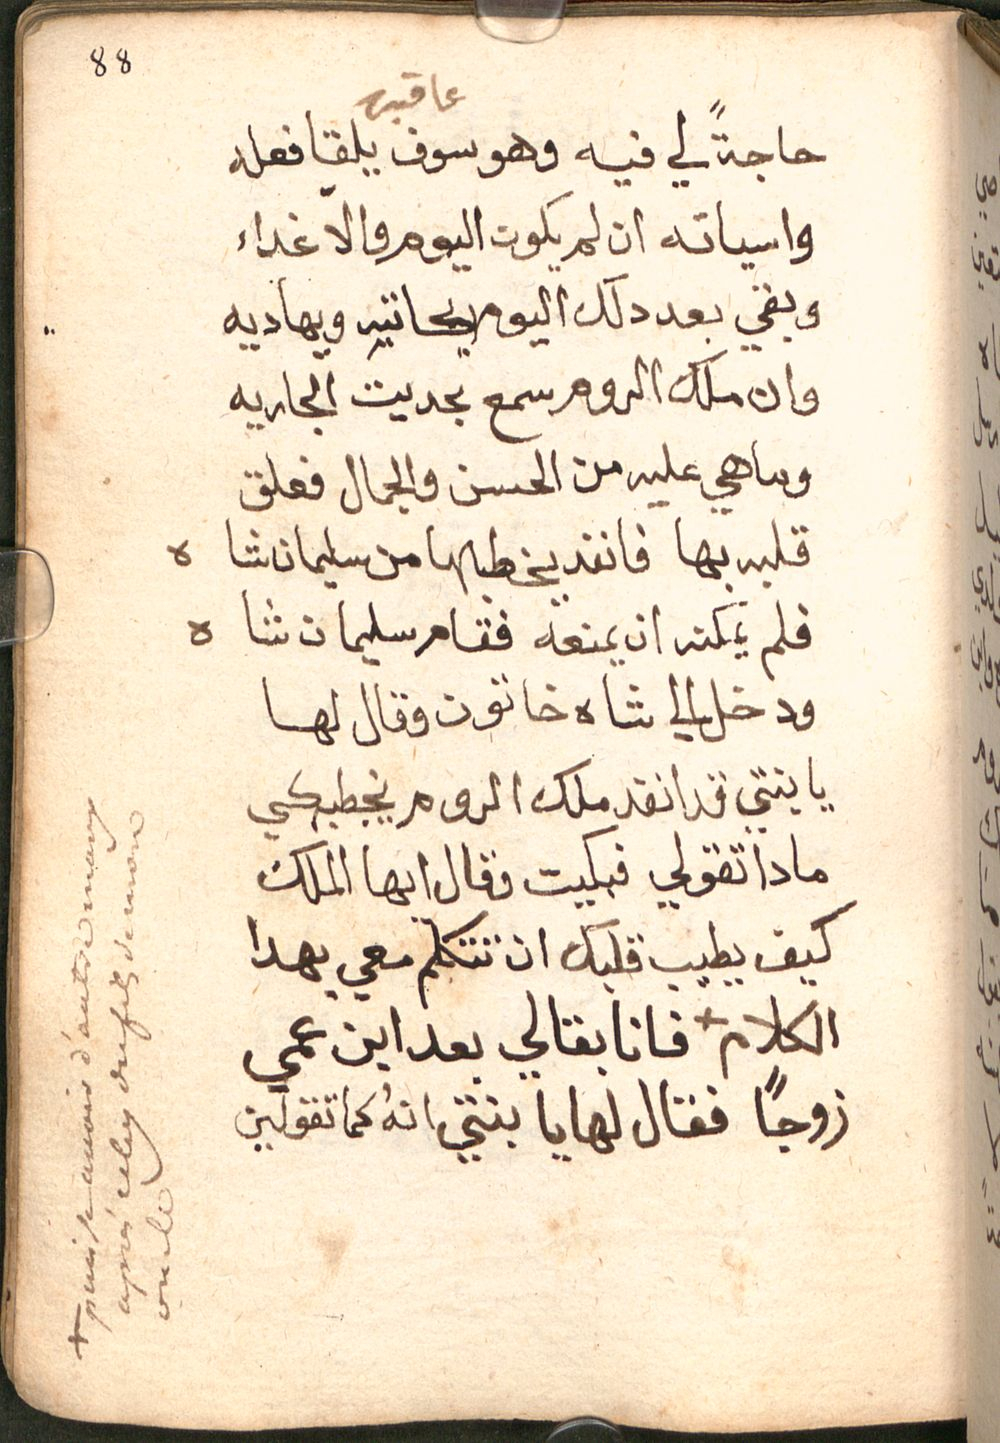 88
عاقبه
حاجةً لي فيه وهو سوف يلقا فعله
واسياته ان لم يكون اليوم والا غداء
وبقي بعد دلك اليوم يحانيه ويهاديه
وان ملك الروم سمع بحديت الجاريه
وما هي عليه من الحسن والجمال فعلق
قلبه بها فانفد يخطبها من سليمان شا ه
فلم يمكنه ان يمنعه فقام سليمان شا ه
ودخل الي شاه خاتون وقال لها
يا بنتي قد انفد ملك الروم يخطبكي
مادا تقولي فبكيت وقال ايها الملك
كيف يطيب قلبك ان تتكلم معي بهدا
الكلام + فانا بقالي بعد ابن عمي
زوجًا فقال لها يا بنتي انهُ كما تقولين
+ puis je avoir d'autre mary
aprés celuy du fils de mon
oncle